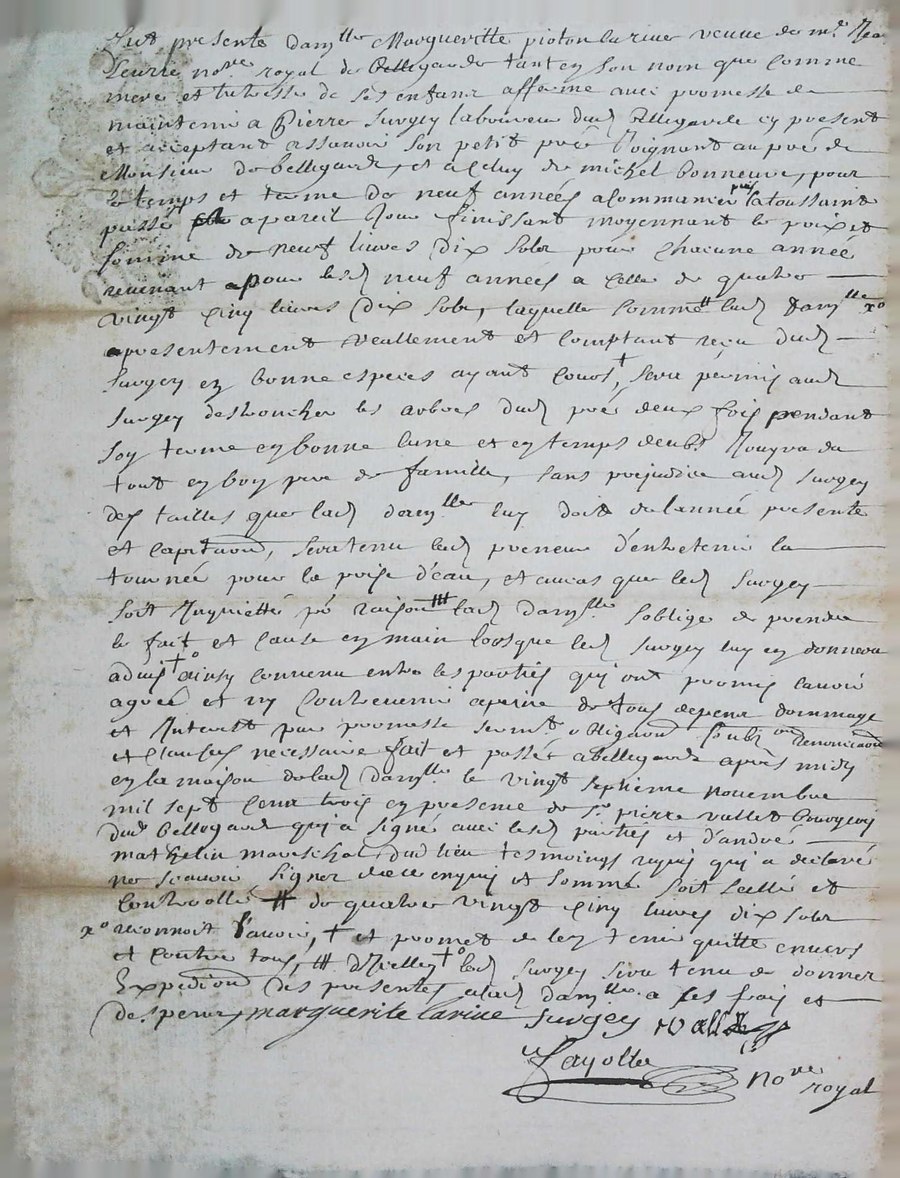 Fut presente dam^lle Margueritte pioton larive veuve de m^e Jean
Decurie no^re royal de Bellegarde tant en son nom que comme
mere et tutresse de ses enfans afferme avec promesse de
maintenir a Pierre Surgey laboureur dud Bellegarde cy present
et acceptant assavoir son petit pré Joignant au pré de
Monsieur de bellegarde, et a celuy de michel bonneuve, pour
le temps et terme de neuf années a commancer puis la toussaint
passé a pareil Jour finissant moyennant le prix et
somme de neuf livres dix sols pour chacune année
revenant pour lesd neuf années a celle de quatre
vingt cinq livres dix sols, laquelle somme # lad dam^lle x^o
a presentement reallement et comptant reçu dud
Surgey en bonne especes ayant cours †, sera permis aud
Surgey desbrocher les arbres dud pré deux fois pendant
son terme en bonne lune et en temps deubs Jouyra du
tout en bon pere de famille, sans prejudice aud Surgey
des tailles que lad dam^lle luy doit de lannée presente
et capitaon, sera tenu led preneur d'entretenir la
tournée pour la prise d'eau, et au cas que led Surgey
soit Inquietté pr raison ## lad dam^lle s'oblige de prendre
le fait et cause en main lorsque led Surgey luy en donnera
advis †^o ainsy convenu entre les parties qui ont promis lavoir
agreé et ny contrevenir a peine de tous depens dommage
et Interest par promesse serm^t obligaon renonciaon
et clauses necessaire fait et passé a bellegarde après midy
en la maison de lad dam^lle le vingt septieme novembre
mil sept cent trois en presence de S^r pierre vallet bourgeois
dud Bellegarde qui a signé avec lesd parties et d'andré
mathelin mareschal dud lieu tesmoings requis qui a declaré
ne scavoir signer de ce enquis et sommé soit scellé et
controllé # de quatre vingt cinq livres dix sols
x^o reconnoit l'avoir, † et promet de len tenir quitte envers
et contre tous, ## †^o led Surgey sera tenu de donner
Expedion des presentes a lad dam^lle a ses frais et
despens marguerite larive Surgey vallet
Fayolle no^re royal